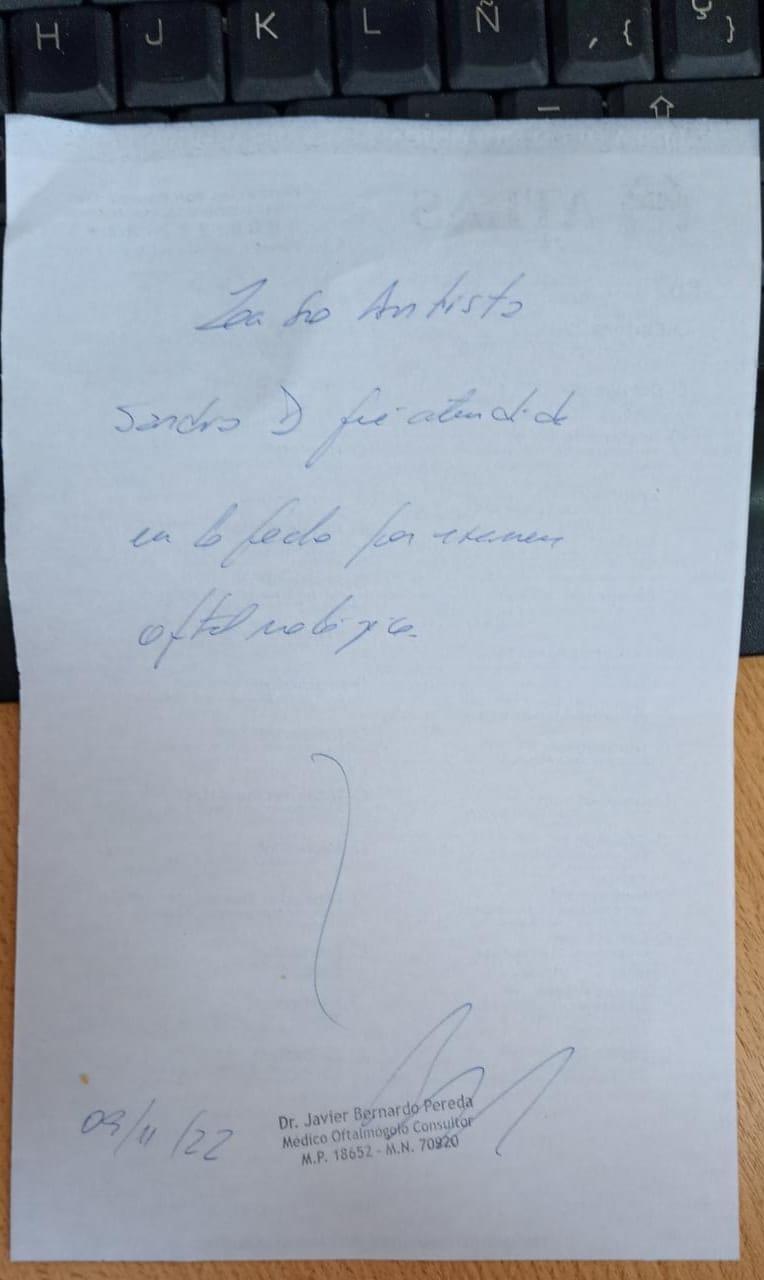 H J K L Ñ , { Ç }
_ ⇧
ATLAS
Antisto
Sandro D fué atendido
en la fecha por examen
oftalmológico.
09/11/22
Dr. Javier Bernardo Pereda
Médico Oftalmógolo Consultor
M.P. 18652 - M.N. 70920